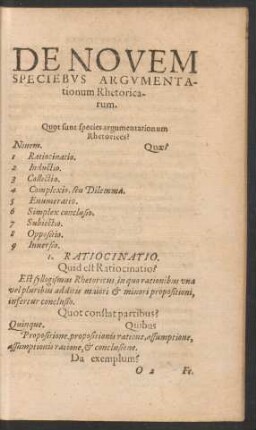 DE NOVEM
SPECIEBVS ARGVMENTA-
tionum Rhetorica-
rum.
Quot sunt species argumentationum
Rhetorices?
Nouem. Quæ?
1 Ratiocinatio.
2 Inductio.
3 Collectio.
4 Complexio, seu Dilemma.
5 Enumeratio.
6 Simplex conclusio.
7 Subiectio.
8 Oppositio.
9 Inuersio.
1. RATIOCINATIO.
Quid est Ratiocinatio?
Est syllogismus Rhetoricus, in quo rationibus vna
vel pluribus additis maiori & minori propositioni,
infertur conclusio.
Quot constat partibus?
Quinque. Quibus
Propositione, propositionis ratione, assumptione,
assumptionis ratione, & conclusione.
Da exemplum?
O 2 Fe.